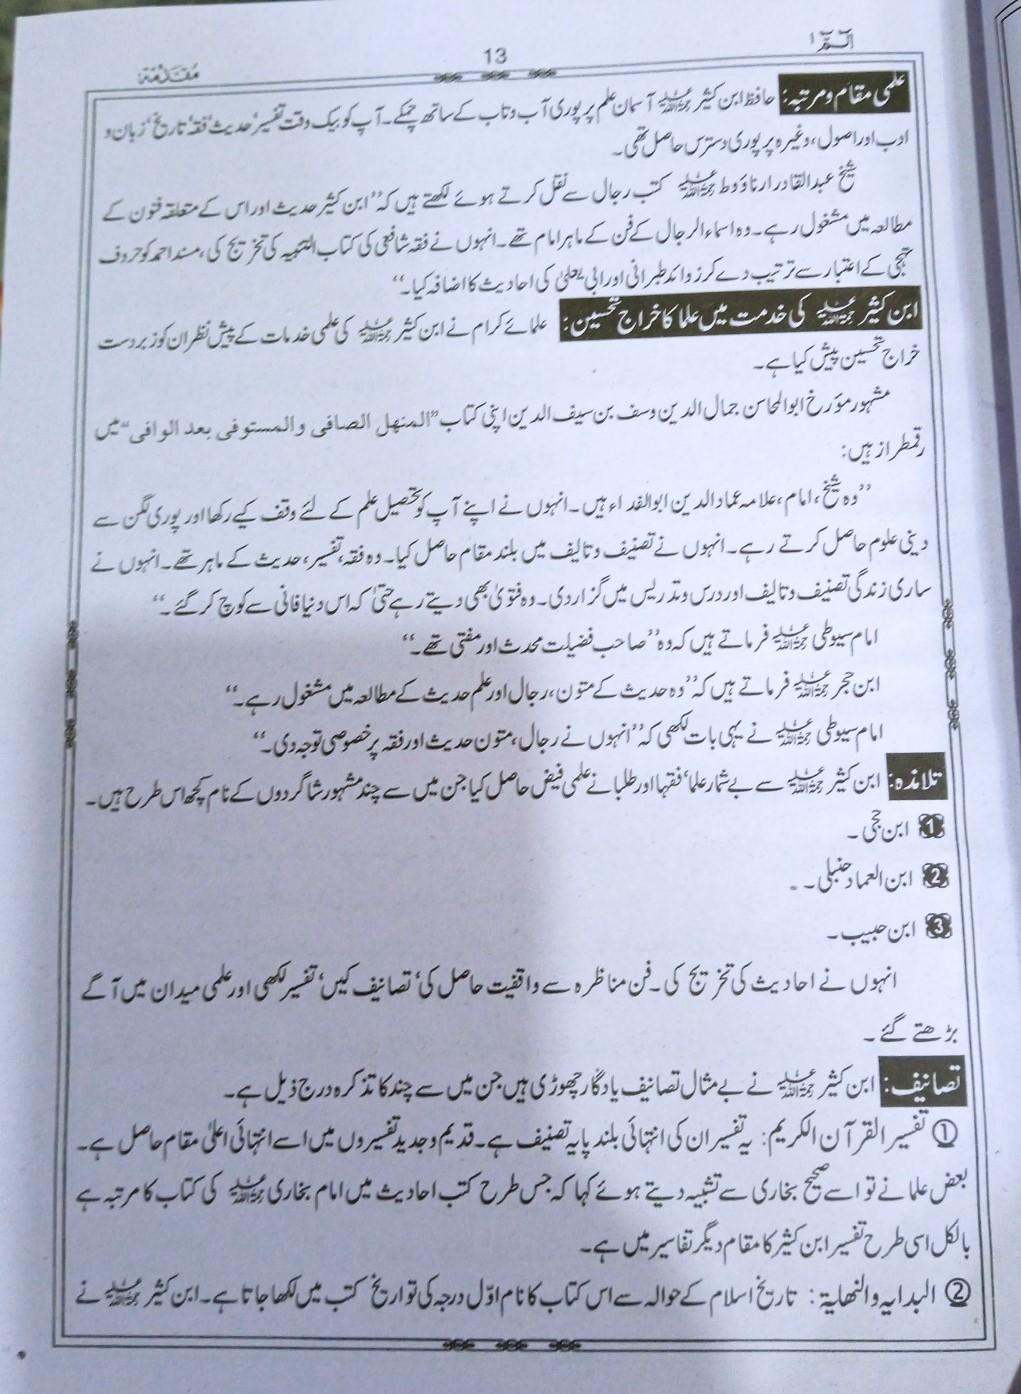 الٓمّٓ ۱
13
مُقَدِّمَة
علمی مقام و مرتبہ: حافظ ابن کثیر رحمۃ اللہ علیہ آسمان علم پر پوری آب و تاب کے ساتھ چمکے۔ آپ کو بیک وقت تفسیر‘ حدیث‘ فقہ‘ تاریخ‘ زبان و
ادب اور اصول، وغیرہ پر پوری دسترس حاصل تھی۔
شیخ عبدالقادر ارناؤوط رحمۃ اللہ علیہ کتب رجال سے نقل کرتے ہوئے لکھتے ہیں کہ ’’ابن کثیر حدیث اور اس کے متعلقہ فنون کے
مطالعہ میں مشغول رہے۔ وہ اسماء الرجال کے فن کے ماہر امام تھے۔ انہوں نے فقہ شافعی کی کتاب التنبیہ کی تخریج کی، مسند احمد کو حروف
تہجی کے اعتبار سے ترتیب دے کر زوائد طبرانی اور ابی یعلیٰ کی احادیث کا اضافہ کیا۔‘‘
ابن کثیر رحمۃ اللہ علیہ کی خدمت میں علما کا خراج تحسین: علمائے کرام نے ابن کثیر رحمۃ اللہ علیہ کی علمی خدمات کے پیش نظر ان کو زبردست
خراج تحسین پیش کیا ہے۔
مشہور مؤرخ ابو المحاسن جمال الدین وسف بن سیف الدین اپنی کتاب ’’المنهل الصافی و المستوفی بعد الوافی‘‘ میں
رقمطراز ہیں:
’’وہ شیخ، امام، علامہ عماد الدین ابو الفداء ہیں۔ انہوں نے اپنے آپ کو تحصیل علم کے لئے وقف کیے رکھا اور پوری لگن سے
دینی علوم حاصل کرتے رہے۔ انہوں نے تصنیف و تالیف میں بلند مقام حاصل کیا۔ وہ فقہ، تفسیر، حدیث کے ماہر تھے۔ انہوں نے
ساری زندگی تصنیف و تالیف اور درس و تدریس میں گزار دی۔ وہ فتویٰ بھی دیتے رہے حتیٰ کہ اس دنیا فانی سے کوچ کر گئے۔‘‘
امام سیوطی رحمۃ اللہ علیہ فرماتے ہیں کہ وہ ’’صاحب فضیلت محدث اور مفتی تھے۔‘‘
ابن حجر رحمۃ اللہ علیہ فرماتے ہیں کہ ’’وہ حدیث کے متون، رجال اور علم حدیث کے مطالعہ میں مشغول رہے۔‘‘
امام سیوطی رحمۃ اللہ علیہ نے یہی بات لکھی کہ ’’انہوں نے رجال، متون حدیث اور فقہ پر خصوصی توجہ دی۔‘‘
تلامذہ: ابن کثیر رحمۃ اللہ علیہ سے بے شمار علما‘ فقہا اور طلبا نے علمی فیض حاصل کیا جن میں سے چند مشہور شاگردوں کے نام کچھ اس طرح ہیں۔
1 ابن حجی۔
2 ابن العماد حنبلی۔
3 ابن حبیب۔
انہوں نے احادیث کی تخریج کی۔ فن مناظرہ سے واقفیت حاصل کی‘ تصانیف کیں‘ تفسیر لکھی اور علمی میدان میں آگے
بڑھتے گئے۔
تصانیف: ابن کثیر رحمۃ اللہ علیہ نے بے مثال تصانیف یادگار چھوڑی ہیں جن میں سے چند کا تذکرہ درج ذیل ہے۔
① تفسیر القرآن الکریم: یہ تفسیر ان کی انتہائی بلند پایہ تصنیف ہے۔ قدیم و جدید تفسیروں میں اسے انتہائی اعلیٰ مقام حاصل ہے۔
بعض علما نے تو اسے صحیح بخاری سے تشبیہ دیتے ہوئے کہا کہ جس طرح کتب احادیث میں امام بخاری رحمۃ اللہ علیہ کی کتاب کا مرتبہ ہے
بالکل اسی طرح تفسیر ابن کثیر کا مقام دیگر تفاسیر میں ہے۔
② البدایہ والنھایۃ: تاریخ اسلام کے حوالہ سے اس کتاب کا نام اوّل درجہ کی تواریخ کتب میں لکھا جاتا ہے۔ ابن کثیر رحمۃ اللہ علیہ نے